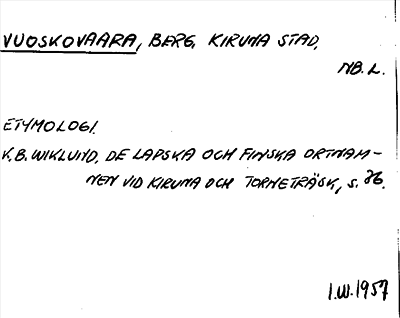 VUOSKOVAARA, BERG, KIRUNA STAD,
NB. L.
ETYMOLOGI.
K.B. WIKLUND, DE LAPSKA OCH FINSKA ORTNAM-
NEN VID KIRUNA OCH TORNETRÄSK, S. 26.
I.W. 1957